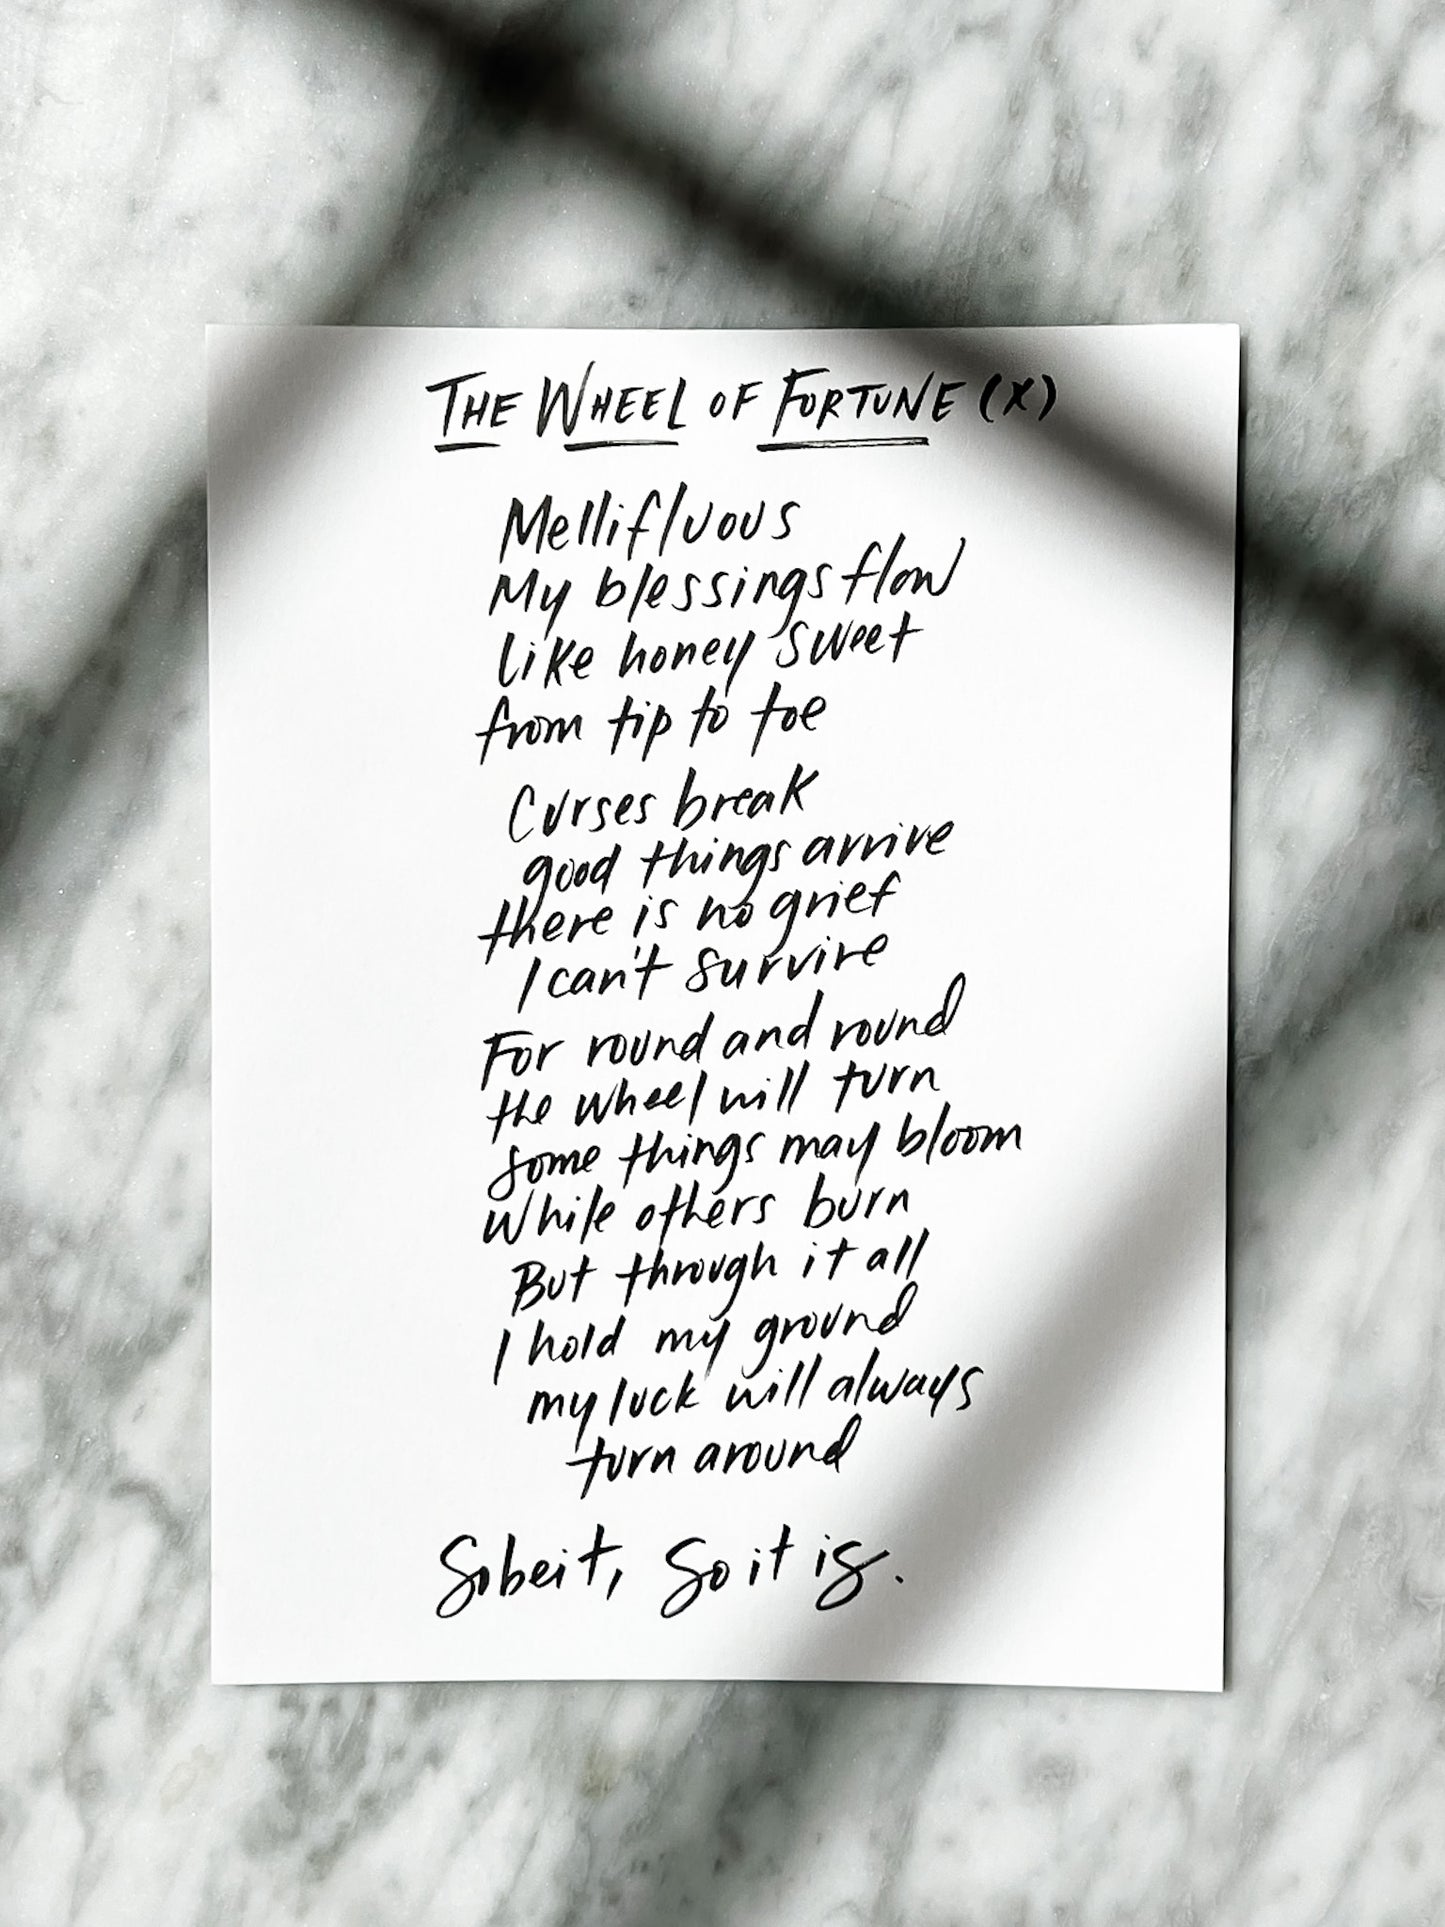 THE WHEEL OF FORTUNE (X)
Mellifluous
My blessings flow
like honey sweet
from tip to toe
Curses break
good things arrive
there is no grief
I can't survive
For round and round
the wheel will turn
some things may bloom
while others burn
But through it all
I hold my ground
my luck will always
turn around
So be it, So it is.